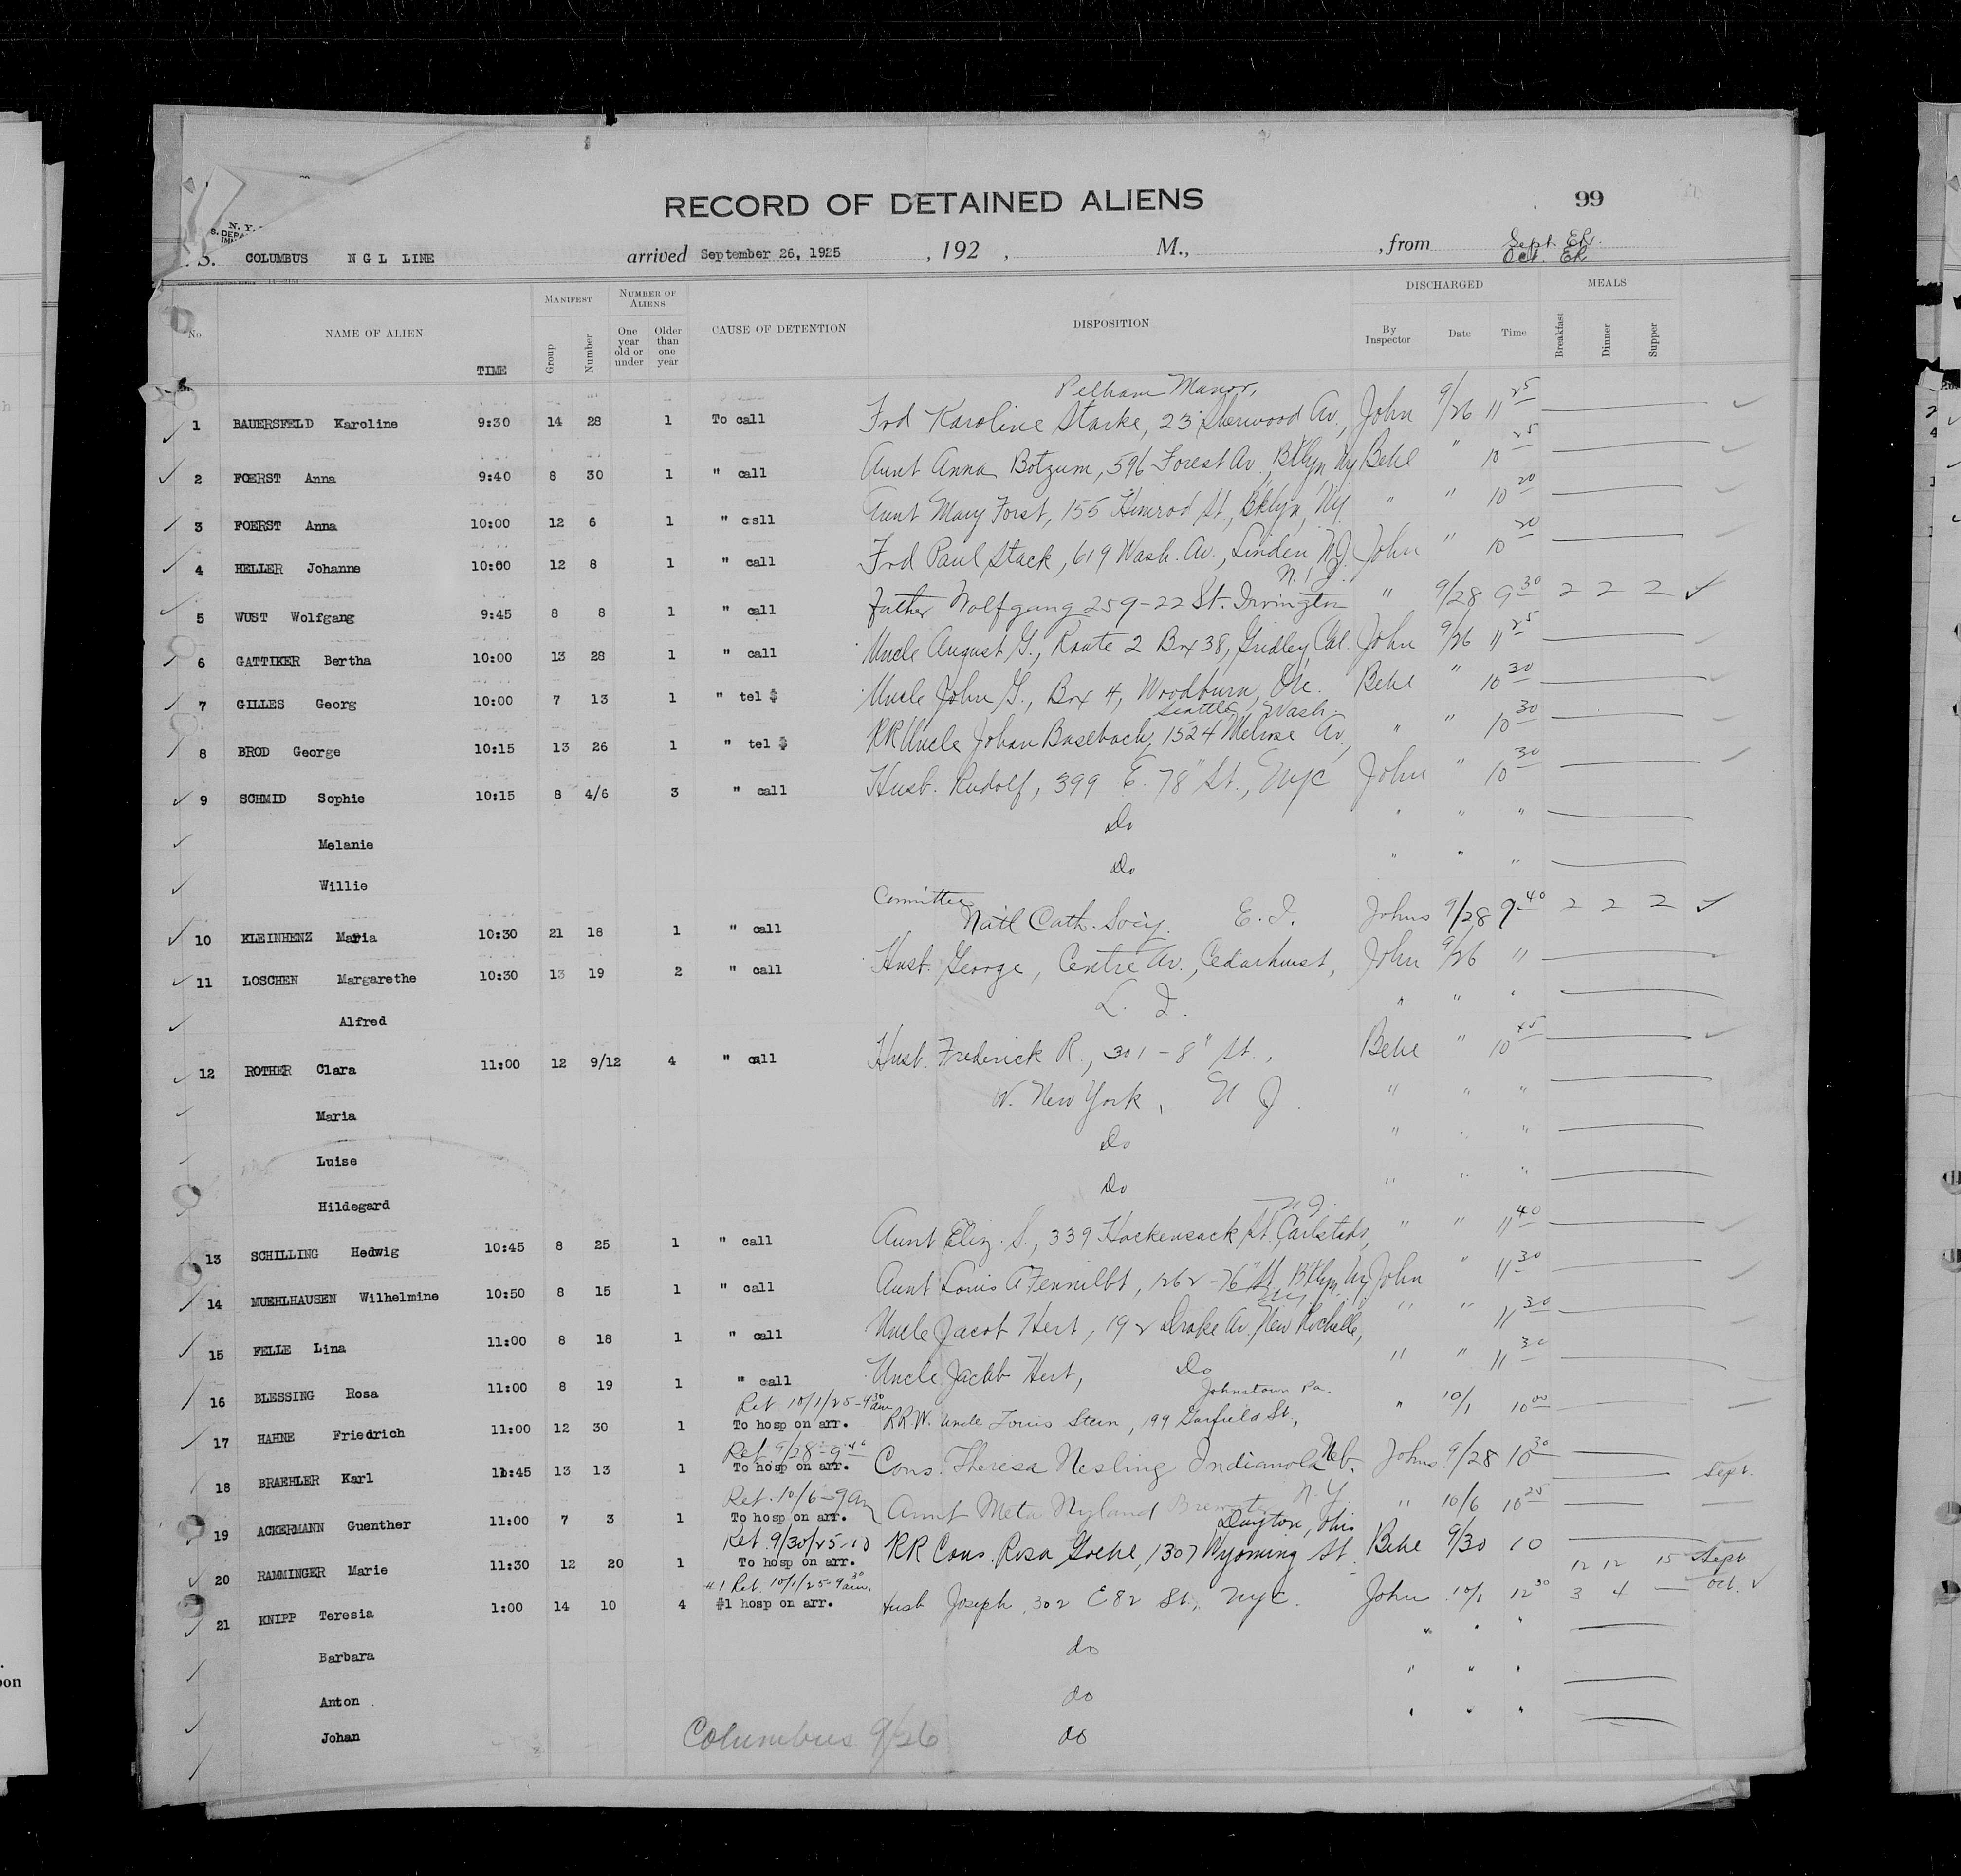 RECORD OF DETAINED ALIENS 99
N. Y.
S. COLUMBUS N G L LINE arrived September 26, 1925 , 192 , M., , from Sept. Ek.
Oct. Ek
No. NAME OF ALIEN TIME MANIFEST Group Number NUMBER OF ALIENS One year old or under Older than one year CAUSE OF DETENTION DISPOSITION DISCHARGED By Inspector Date Time MEALS Breakfast Dinner Supper
Pelham Manor,
1 BAUERSFELD Karoline 9:30 14 28 1 To call Frd Karoline Starke, 23 Sherwood Av., John 9/26 11 25
2 FOERST Anna 9:40 8 30 1 " call Aunt Anna Botzum, 596 Forest Av., Bklyn, Ny Behl " 10 25
3 FOERST Anna 10:00 12 6 1 " csll Aunt Mary Forst, 155 Himrod St., Bklyn, Ny. " " 10 20
4 HELLER Johanne 10:00 12 8 1 " call Frd Paul Stack, 619 Wash. Av., Linden, N.J. John " 10 20
N. J.
5 WUST Wolfgang 9:45 8 8 1 " call father Wolfgang 259-22 St. Irvington " 9/28 9 30 2 2 2
6 GATTIKER Bertha 10:00 13 28 1 " call Uncle August G., Route 2 Box 38, Gridley, Cal. John 9/26 11 25
7 GILLES Georg 10:00 7 13 1 " tel $ Uncle John G., Box 4, Woodburn, Ore. Behl " 10 30
Seattle, Wash.
8 BROD George 10:15 13 26 1 " tel $ RR Uncle Johan Basebach, 1524 Melrose Av, " " 10 30
9 SCHMID Sophie 10:15 8 4/6 3 " call Husb. Rudolf, 399 E. 78" St., Nyc John " 10 30
Melanie Do " " "
Willie Do " " "
Committee
10 KLEINHENZ Maria 10:30 21 18 1 " call Natl Cath. Socy. E. I. Johns 9/28 9 40 2 2 2
11 LOSCHEN Margarethe 10:30 13 19 2 " call Husb. George, Centre Av., Cedarhurst, John 9/26 "
Alfred L. I. " " "
12 ROTHER Clara 11:00 12 9/12 4 " call Husb. Frederick R., 301-8" St., Behl " 10 45
Maria W. New York, N J. " " "
Luise Do " " "
Hildegard Do " " "
N. J.
13 SCHILLING Hedwig 10:45 8 25 1 " call Aunt Eliz. S., 339 Hackensack St, Carlstadt, " " 11 40
14 MUEHLHAUSEN Wilhelmine 10:50 8 15 1 " call Aunt Louis A 1262-76" St, Bklyn, Ny John " 11 30
15 FELLE Lina 11:00 8 18 1 " call Uncle Jacob Hert, 192 Drake Av. New Rochelle, " " 11 30
16 BLESSING Rosa 11:00 8 19 1 " call Uncle Jacob Hert, Do " " 11 30
Ret 10/1/25-9 30 am Johnstown Pa.
17 HAHNE Friedrich 11:00 12 30 1 To hosp on arr. RR.W. Uncle Louis Stein, 199 Garfield St., " 10/1 10 00
Ret. 9/28-9 40
18 BRAEHLER Karl 11:45 13 13 1 To hosp on arr. Cons. Theresa Nesling Indianola Neb. Johns 9/28 10 30 Sept.
Ret. 10/6-9 am N. Y.
19 ACKERMANN Guenther 11:00 7 3 1 To hosp on arr. Aunt Meta Nyland Brewster " 10/6 10 25
Ret. 9/30/25-10 Dayton, Ohio
20 RAMMINGER Marie 11:30 12 20 1 To hosp on arr. RR Cons. Rosa Goehl, 1307 Wyoming St. Behl 9/30 10
#1 Ret. 10/1/25-9 30 am. 12 12 15 Sept
21 KNIPP Teresia 1:00 14 10 4 #1 hosp on arr. Husb Joseph, 302 E 82 St, Nyc. John 10/1 12 30 3 4 — Oct.
Barbara do " " "
Anton do " " "
Johan do " " "
Columbus 9/26